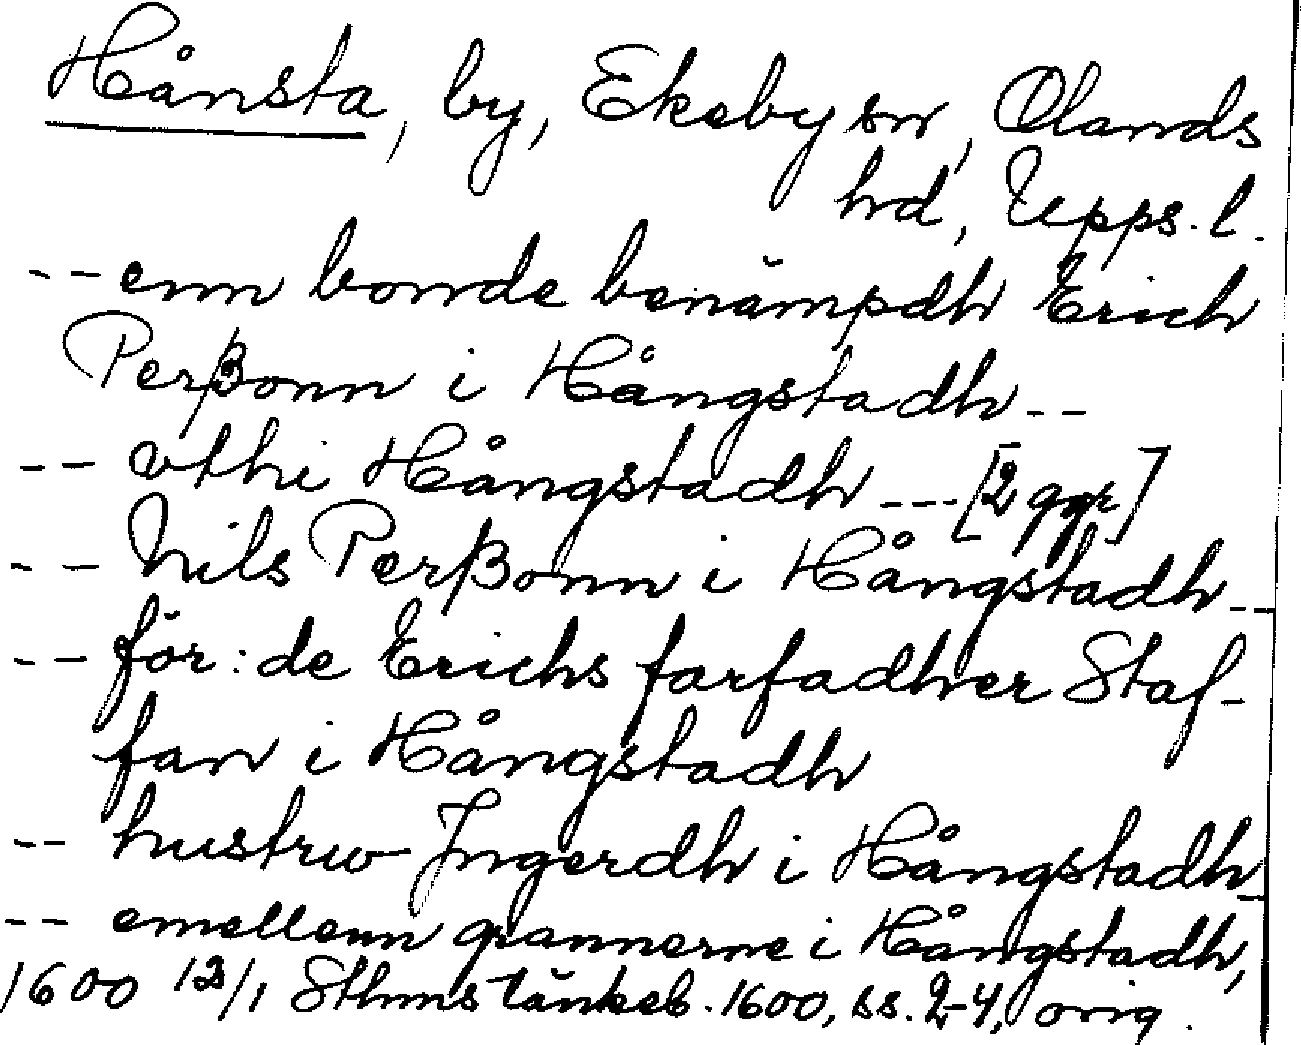 Hånsta, by, Ekeby sn, Olands
hd, Upps. l.
-- enn bonde benämpdh Erich
Perßonn i Hångstadh --
-- vthi Hångstadh --- [2 ggr]
-- Nils Perßonn i Hångstadh --
-- för: de Erichs farfadher Staf-
fan i Hångstadh
-- hustrw Jngerdh i Hångstadh --
-- emellenn grannerne i Hångstadh,
1600 12/1 Sthms tänkeb. 1600, ss. 2-4, orig.